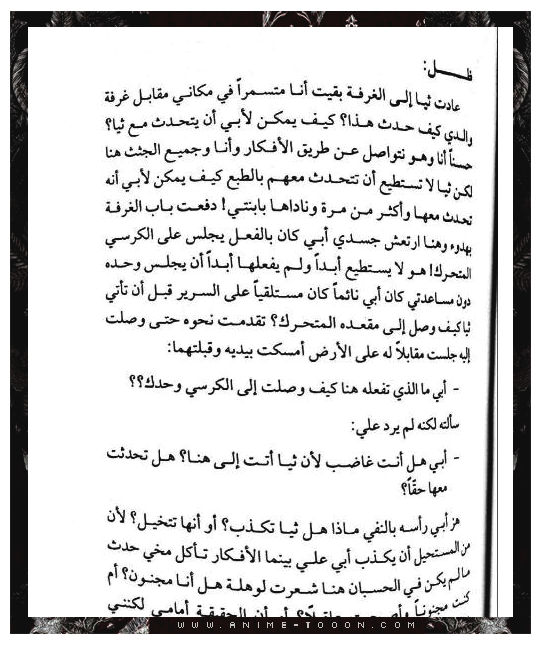 ظـــل:
عادت ثيا إلى الغرفة بقيت أنا متسمراً في مكاني مقابل غرفة
والدي كيف حدث هذا؟ كيف يمكن لأبي أن يتحدث مع ثيا؟
حسناً أنا وهو نتواصل عن طريق الأفكار وأنا وجميع الجثث هنا
لكن ثيا لا تستطيع أن تتحدث معهم بالطبع كيف يمكن لأبي أنه
تحدث معها وأكثر من مرة وناداها بابنتي! دفعت باب الغرفة
بهدوء وهنا ارتعش جسدي أبي كان بالفعل يجلس على الكرسي
المتحرك! هو لا يستطيع أبداً ولم يفعلها أبداً أن يجلس وحده
دون مساعدتي كان أبي نائماً كان مستلقياً على السرير قبل أن تأتي
ثيا كيف وصل إلى مقعده المتحرك؟ تقدمت نحوه حتى وصلت
إليه جلست مقابلاً له على الأرض أمسكت بيديه وقبلتهما:
- أبي ما الذي تفعله هنا كيف وصلت إلى الكرسي وحدك؟؟
سألته لكنه لم يرد علي:
- أبي هل أنت غاضب لأن ثيا أتت إلى هنا؟ هل تحدثت
معها حقّاً؟
هز أبي رأسه بالنفي ماذا هل ثيا تكذب؟ أو أنها تتخيل؟ لأن
من المستحيل أن يكذب أبي علي بينما الأفكار تأكل مخي حدث
ما لم يكن في الحسبان هنا شعرت لوهلة هل أنا مجنون؟ أم
كنت مجنوناً الحقيقة أمامي لكنني
WWW.ANIME-TOOON.COM